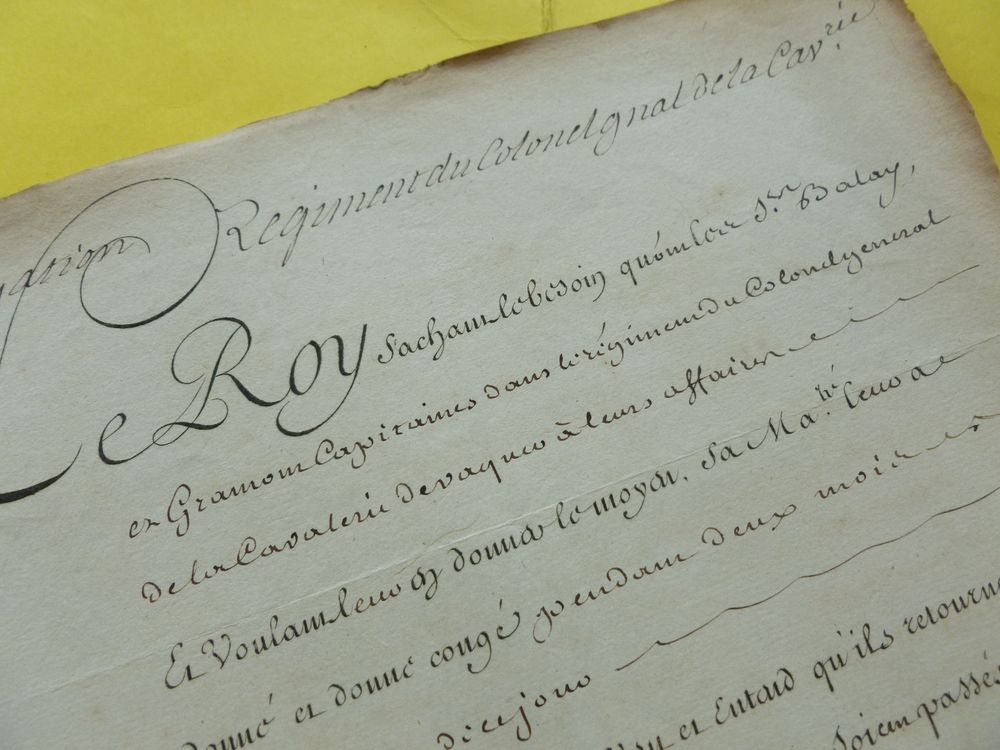 Regiment du Colonel gnal de la Cav.rie
Le Roy sachant le besoin qu'ont les Srs Balay,
et Gramont Capitaines dans le régiment du Colonel general
de la Cavalerie de vaquer à leurs affaires
Et Voulant leur en donner le moyen. Sa Ma.té leur a
donné et donne congé pendant deux mois et
dice jour
et Entard qu'ils retourne
soient passés